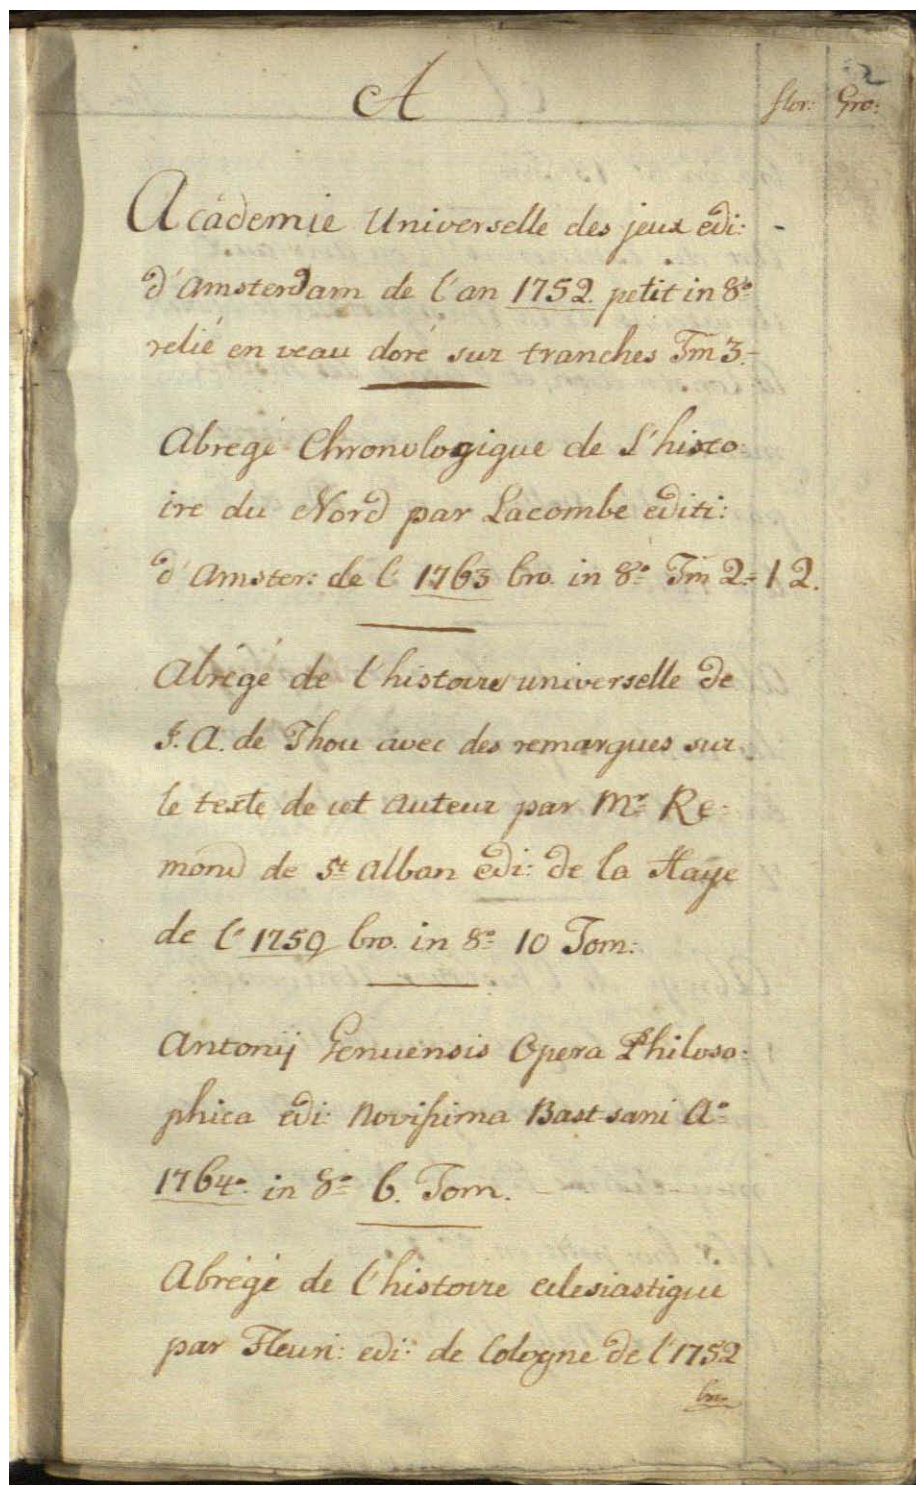 2
A
flor: Gro:
Académie Universelle des jeux edi: -
d'Amsterdam de l'an 1752. petit in 8º
relié en veau doré sur tranches Tm 3.-
Abregé Chronologique de l'histo:
ire du Nord par Lacombe editi:
d'Amster: de l' 1763 bro. in 8º Tm 2.- 12.
Abrégé de l'histoire universelle de
J. A. de Thou avec des remarques sur
le texte de cet auteur par Mr Re:
mond de St Alban edi: de la Haye
de l' 1759 bro. in 8º 10 Tom:
Antonij Genuensis Opera Philoso:
phica edi: Novissima Bassani Aº
1764º in 8º 6. Tom. -
Abrégé de l'histoire eclesiastique
par Fleuri: edi: de Cologne de l' 1752
bro.